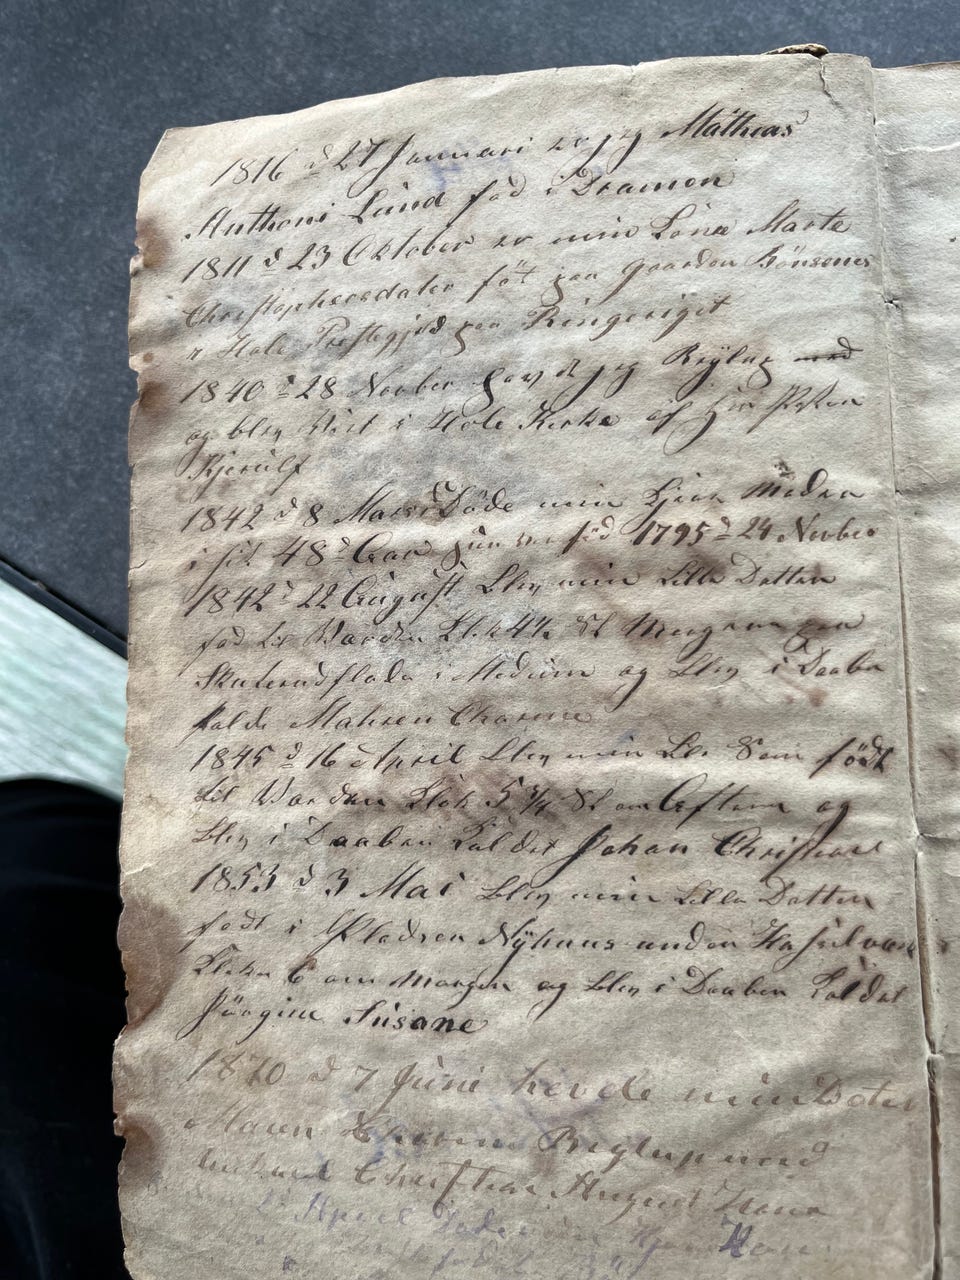 1816 d 27 Januari er jeg Mathias
Anthoni Lund fød i Dramen
1811 d 23 Oktober er min Kone Marte
Christophersdater føt paa gaarden Bönsenes
i Hole Prestegjæld paa Ringeriget
1840 d 28 Novber havde jeg Brÿlup med
og blev Viet i Hole Kirke af Her Presten
Kjerulf
1842 d 8 Mars Døde min Kjere Moder
i sit 48 d Aar hun var fød 1795 d 24 Novber
1842 d 22 August blev min Lille Datter
fød til Varden Klok 4½ Sl Morgenen paa
i Modum og blev i Daaben
kalde Mahren
1845 d 16 April blev min Lile Søn født
til Varden Klok 5 ¾ Sl om Aftenen og
blev i Daaben Kaldet Johan Christian
1853 d 3 Mai blev min Lille Datter
født i Pladsen Nÿhuus under
Kloken 6 om Morgen og blev i Daaben Kaldet
Jörgine Susane
1870 d 7 Juni hevde min Doter
Maren Brylup med
Christian August
April Døde min